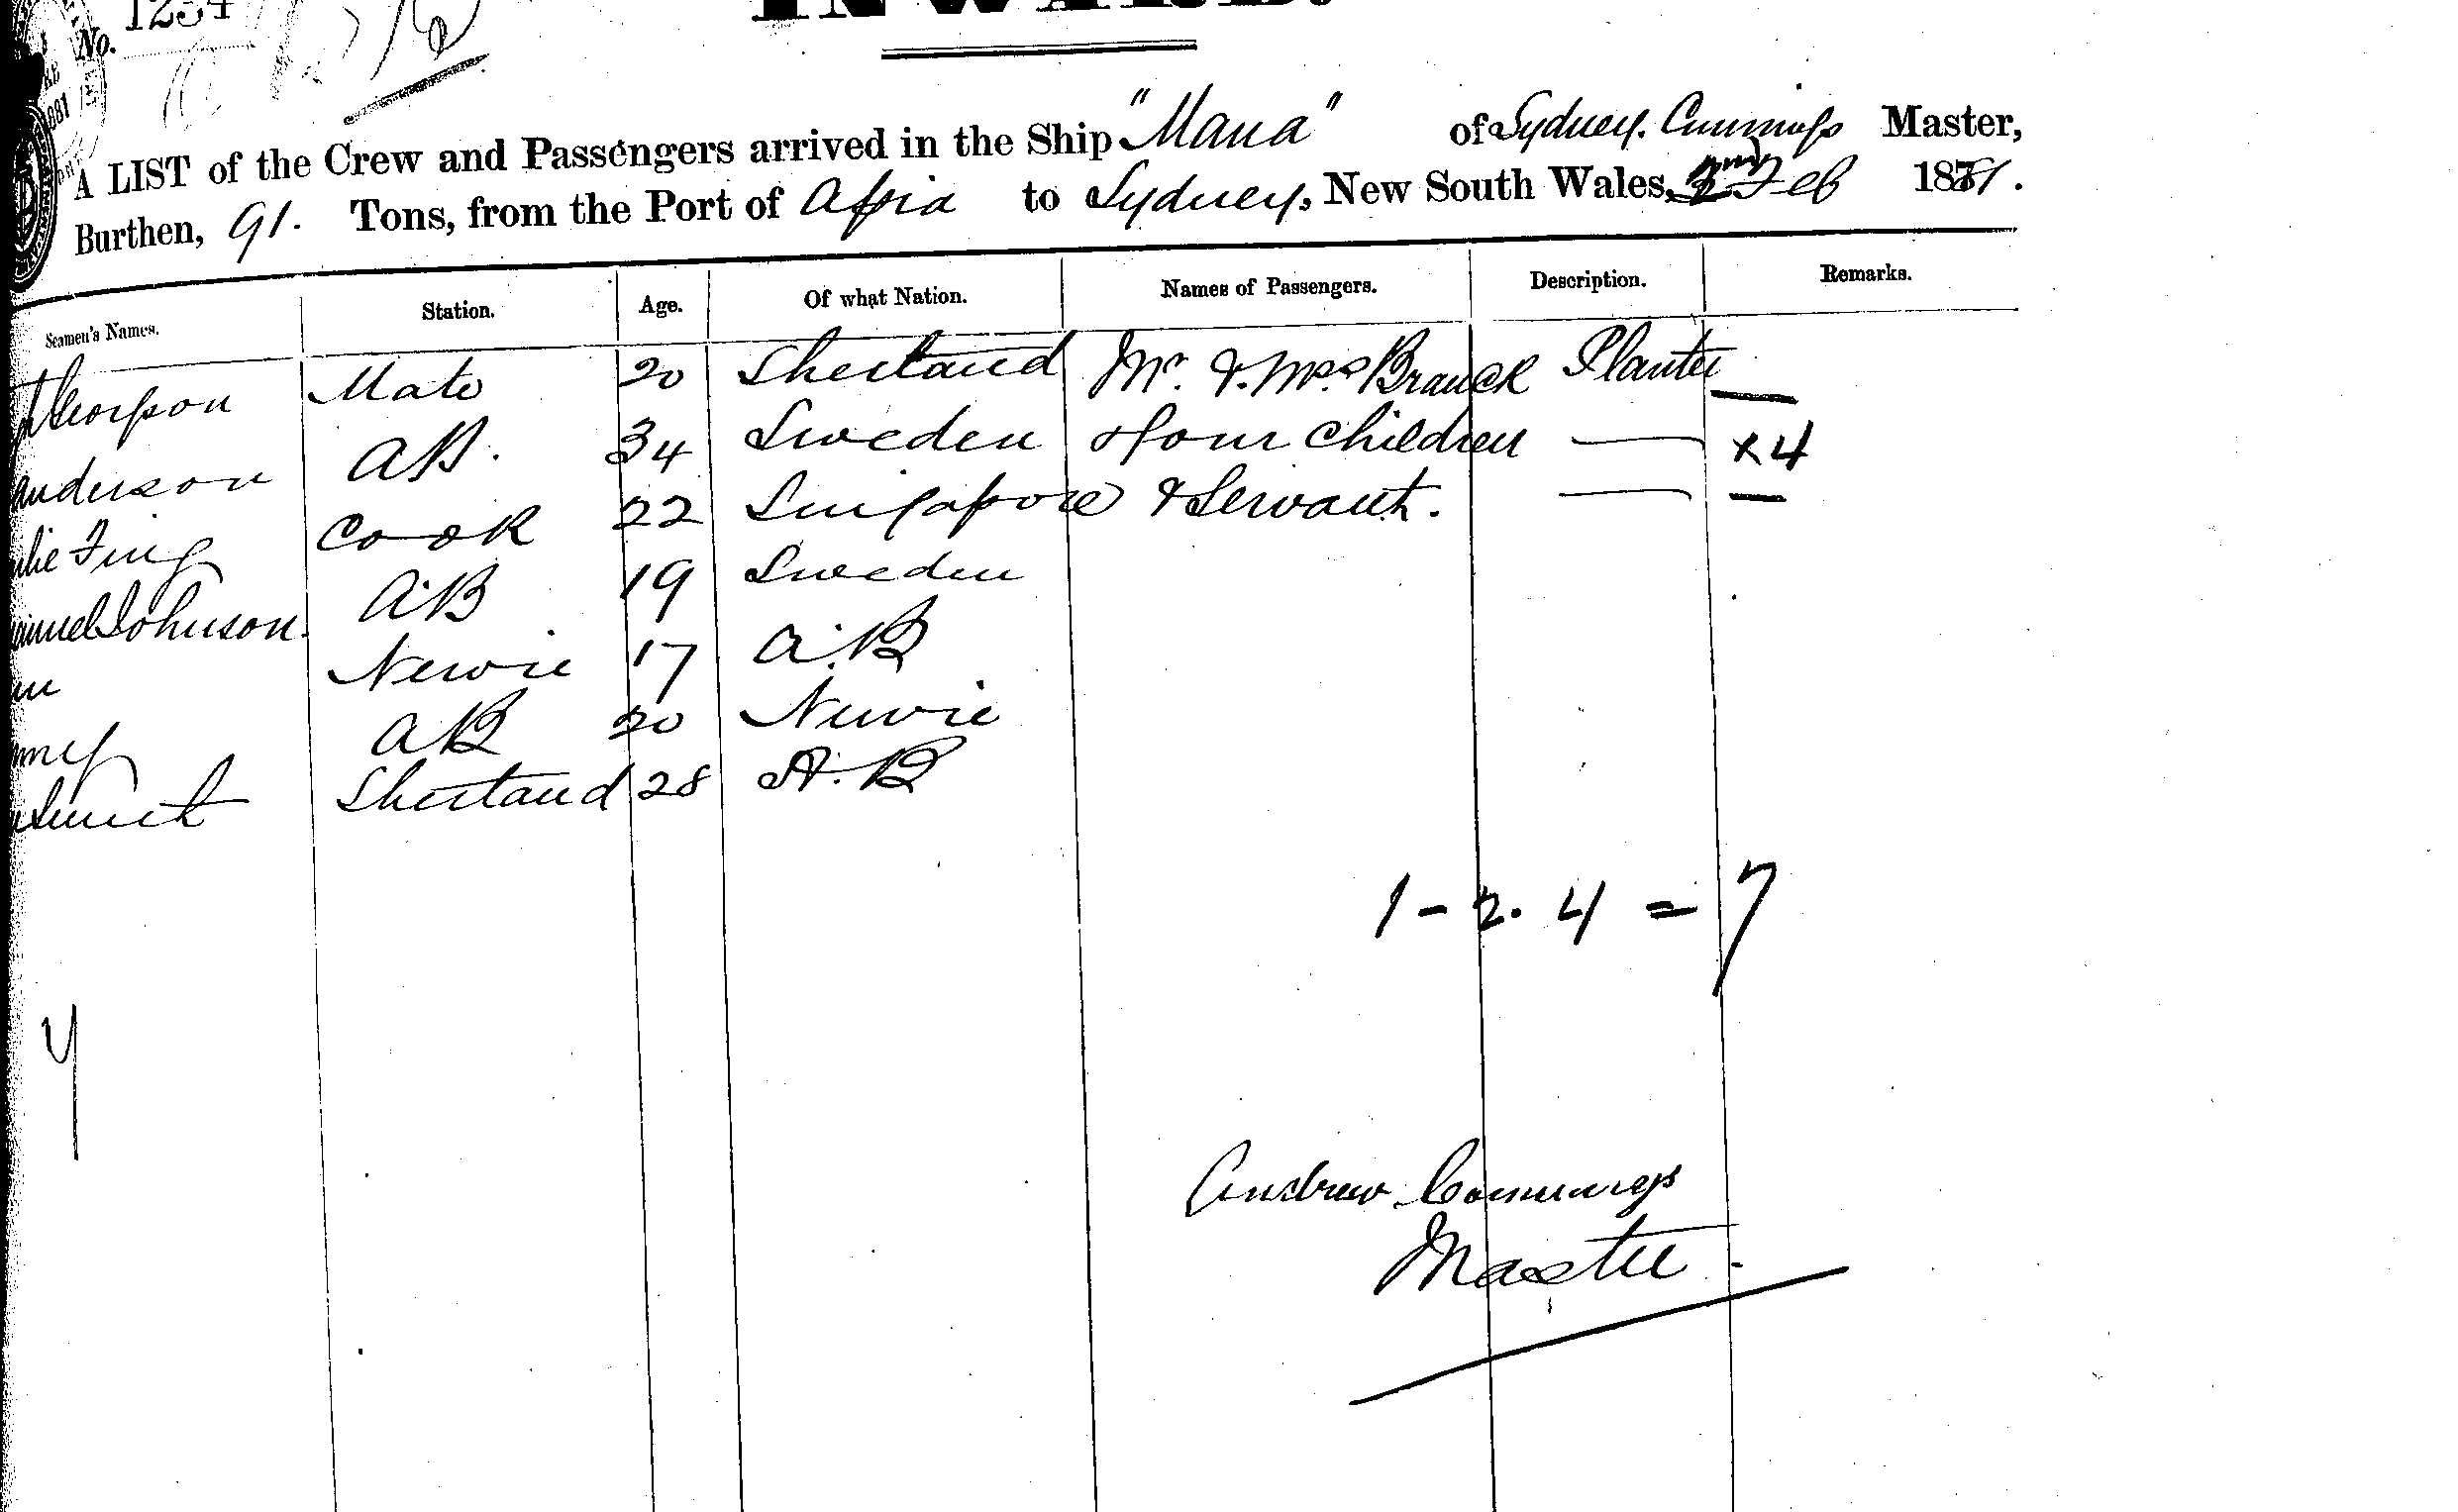 No. 1234
INWARD.
A LIST of the Crew and Passengers arrived in the Ship "Mana" of Sydney. Cummings Master,
Burthen, 91. Tons, from the Port of Apia to Sydney, New South Wales, 2nd Feb 1881.
Seamen's Names. Station. Age. Of what Nation. Names of Passengers. Description. Remarks.
Thorpson Mate 20 Shetland Mr. & Mrs Branck Planter —
Anderson AB. 34 Sweden & four Children — x4
Fing Cook 22 Singapore & Servant. — —
Johnson. A.B 19 Sweden
Newie 17 A.B
AB 20 Nuvie
Shetland 28 A.B
1 - 2. 4 = 7
Andrew Cummings
Master.